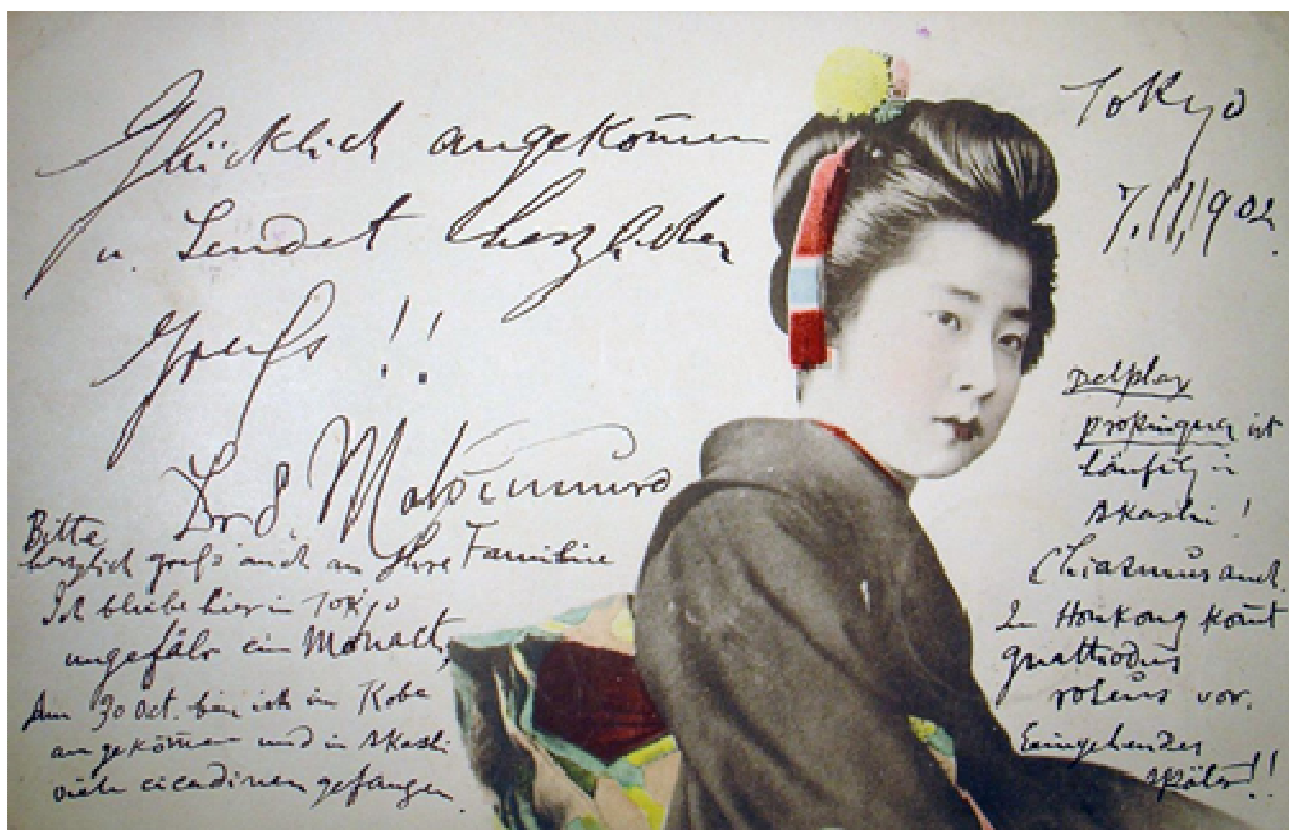 Glücklich angekom̄en
u. sendet herzlichen
Gruß !!
Dr. S. Matsumura
Tokyo
7.11.1902.
Bitte
herzlich gruß auch an Ihre Familie
Ich bleibe hier in Tokyo
ungefähr ein Monat,
Am 30 Oct. bin ich in Kobe
angekom̄en und in Akashi
viele cicadinen gefangen.
Delphax
ist
häufig in
Akashi !
auch.
In Honkong kom̄t
vor.
Eingehendes
später!!